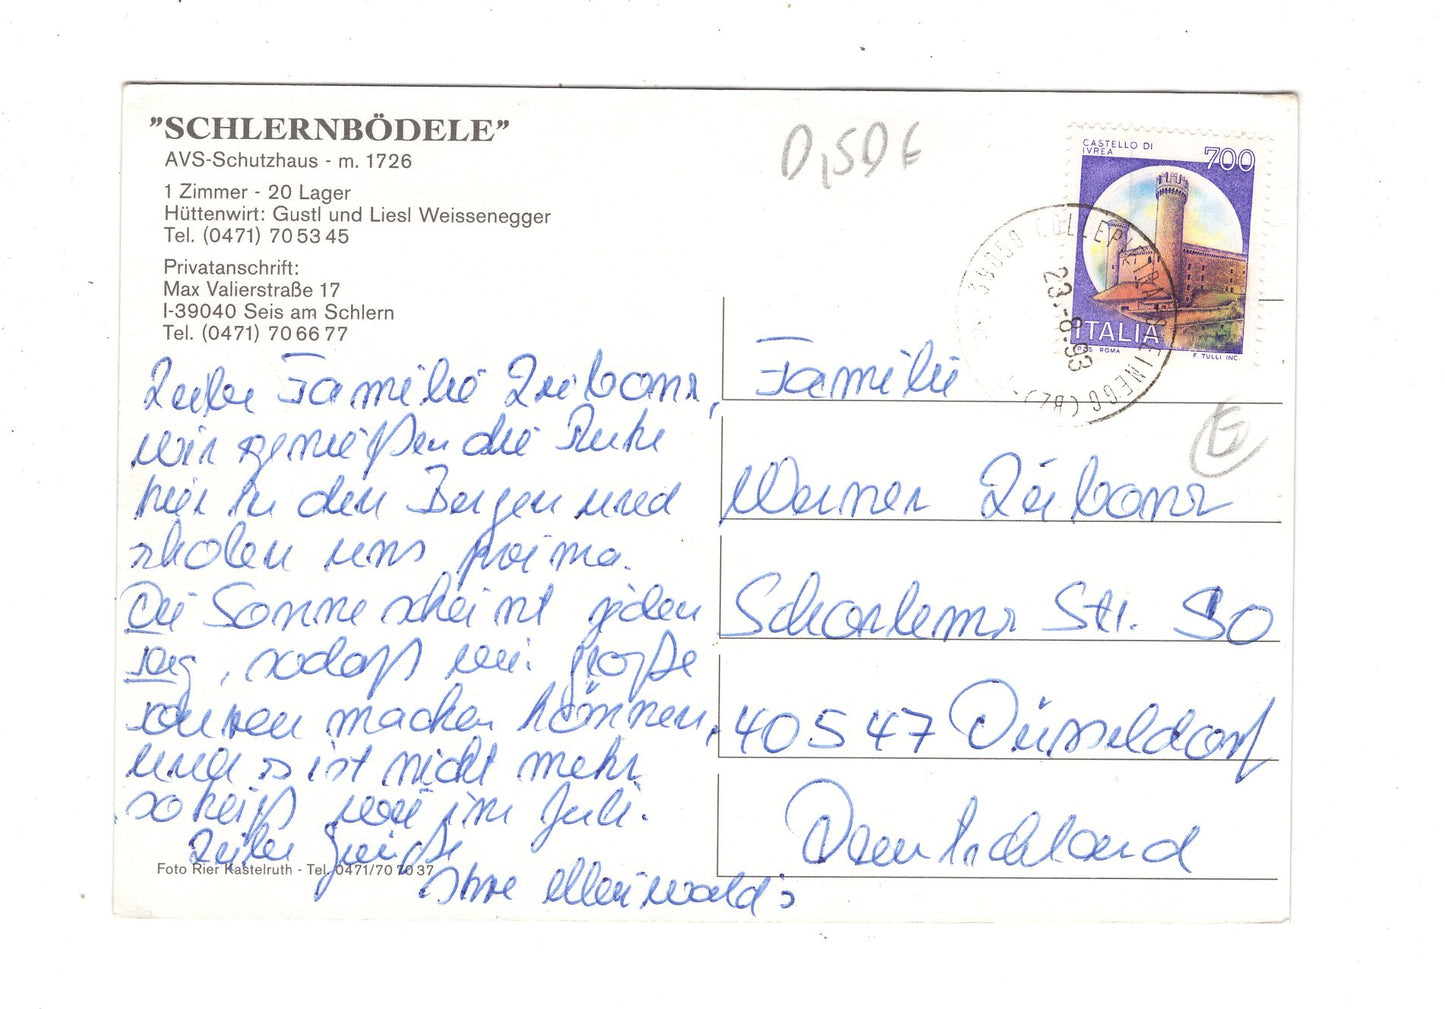 "SCHLERNBÖDELE"
AVS-Schutzhaus - m. 1726
1 Zimmer - 20 Lager
Hüttenwirt: Gustl und Liesl Weissenegger
Tel. (0471) 70 53 45
Privatanschrift:
Max Valierstraße 17
I-39040 Seis am Schlern
Tel. (0471) 70 66 77
Liebe Familie
wir genießen die Ruhe
hier in den Bergen und
erholen uns prima.
Die Sonne scheint jeden
Tag, sodaß wir große
Touren machen können,
und es ist nicht mehr
so heiß wie im Juli.
Liebe Grüße
Ihre
Foto Rier Kastelruth - Tel. 0471/70 70 37
0,50 €
CASTELLO DI
IVREA
700
ITALIA
I.P.S. ROMA
F. TULLI INC.
39050 COLLEPIETRA-STEINEGG (BZ)
23.-8.93
E
Familie
Werner
Schorlemer Str. 90
40547 Düsseldorf
Deutschland